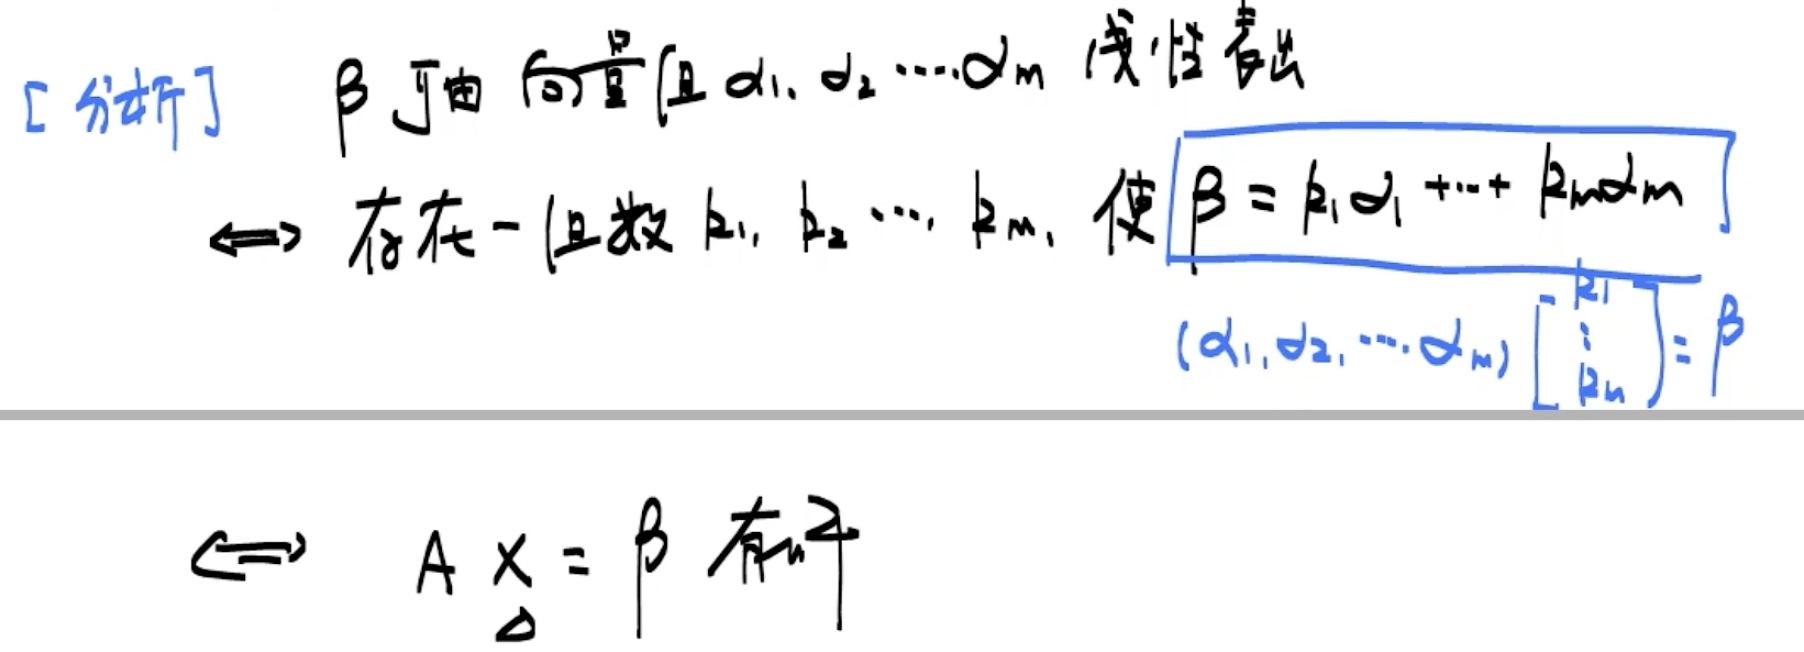 [分析] β可由向量组α₁, α₂ ⋯⋯ αₘ 线性表出
⟺ 存在一组数 k₁, k₂ ⋯, kₘ, 使 β = k₁α₁ +⋯+ kₘαₘ
(α₁, α₂, ⋯⋯ αₘ) [k₁ ⋮ kₘ] = β
⟺ A x = β 有解